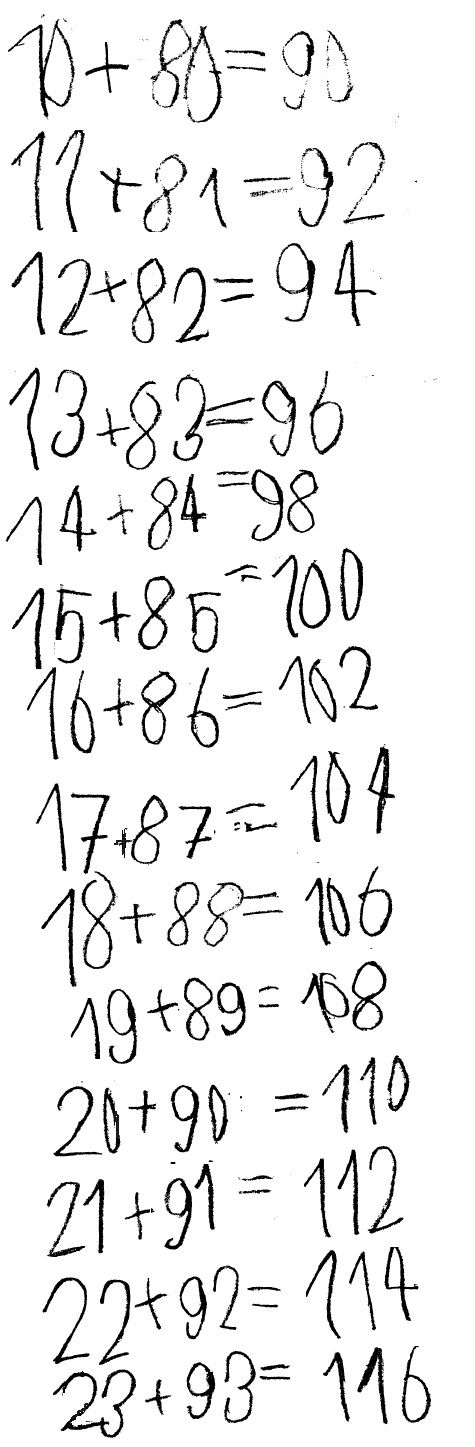 10+80=90
11+81=92
12+82=94
13+83=96
14+84=98
15+85=100
16+86=102
17+87=104
18+88=106
19+89=108
20+90=110
21+91=112
22+92=114
23+93=116